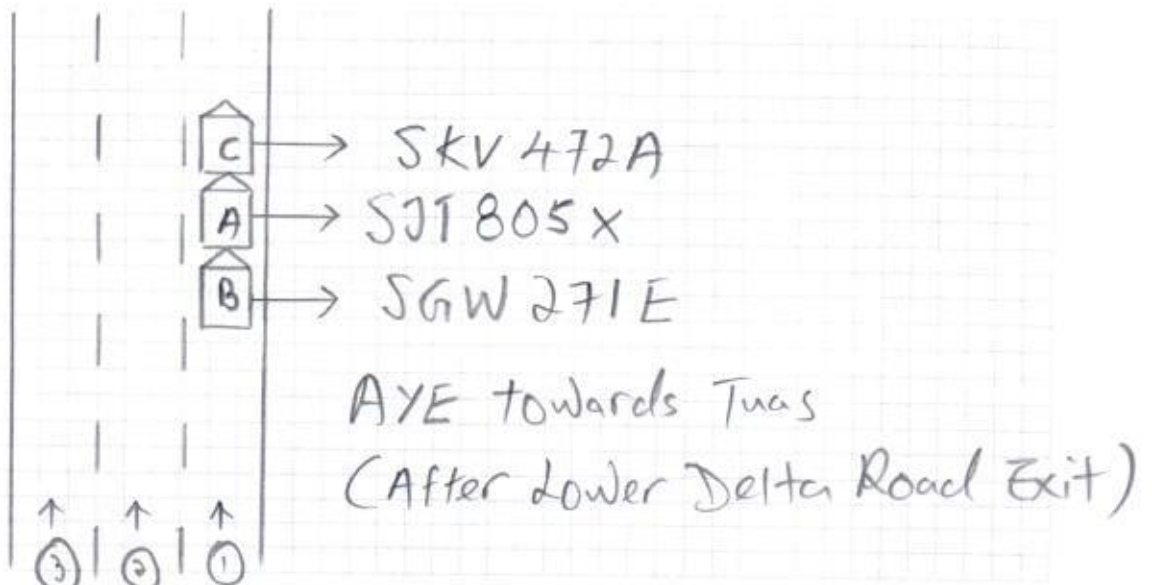 C → SKV 472A
A → SJT 805X
B → SGW 271E
AYE towards Tuas
(After Lower Delta Road Exit)
↑ ↑ ↑
③ ② ①